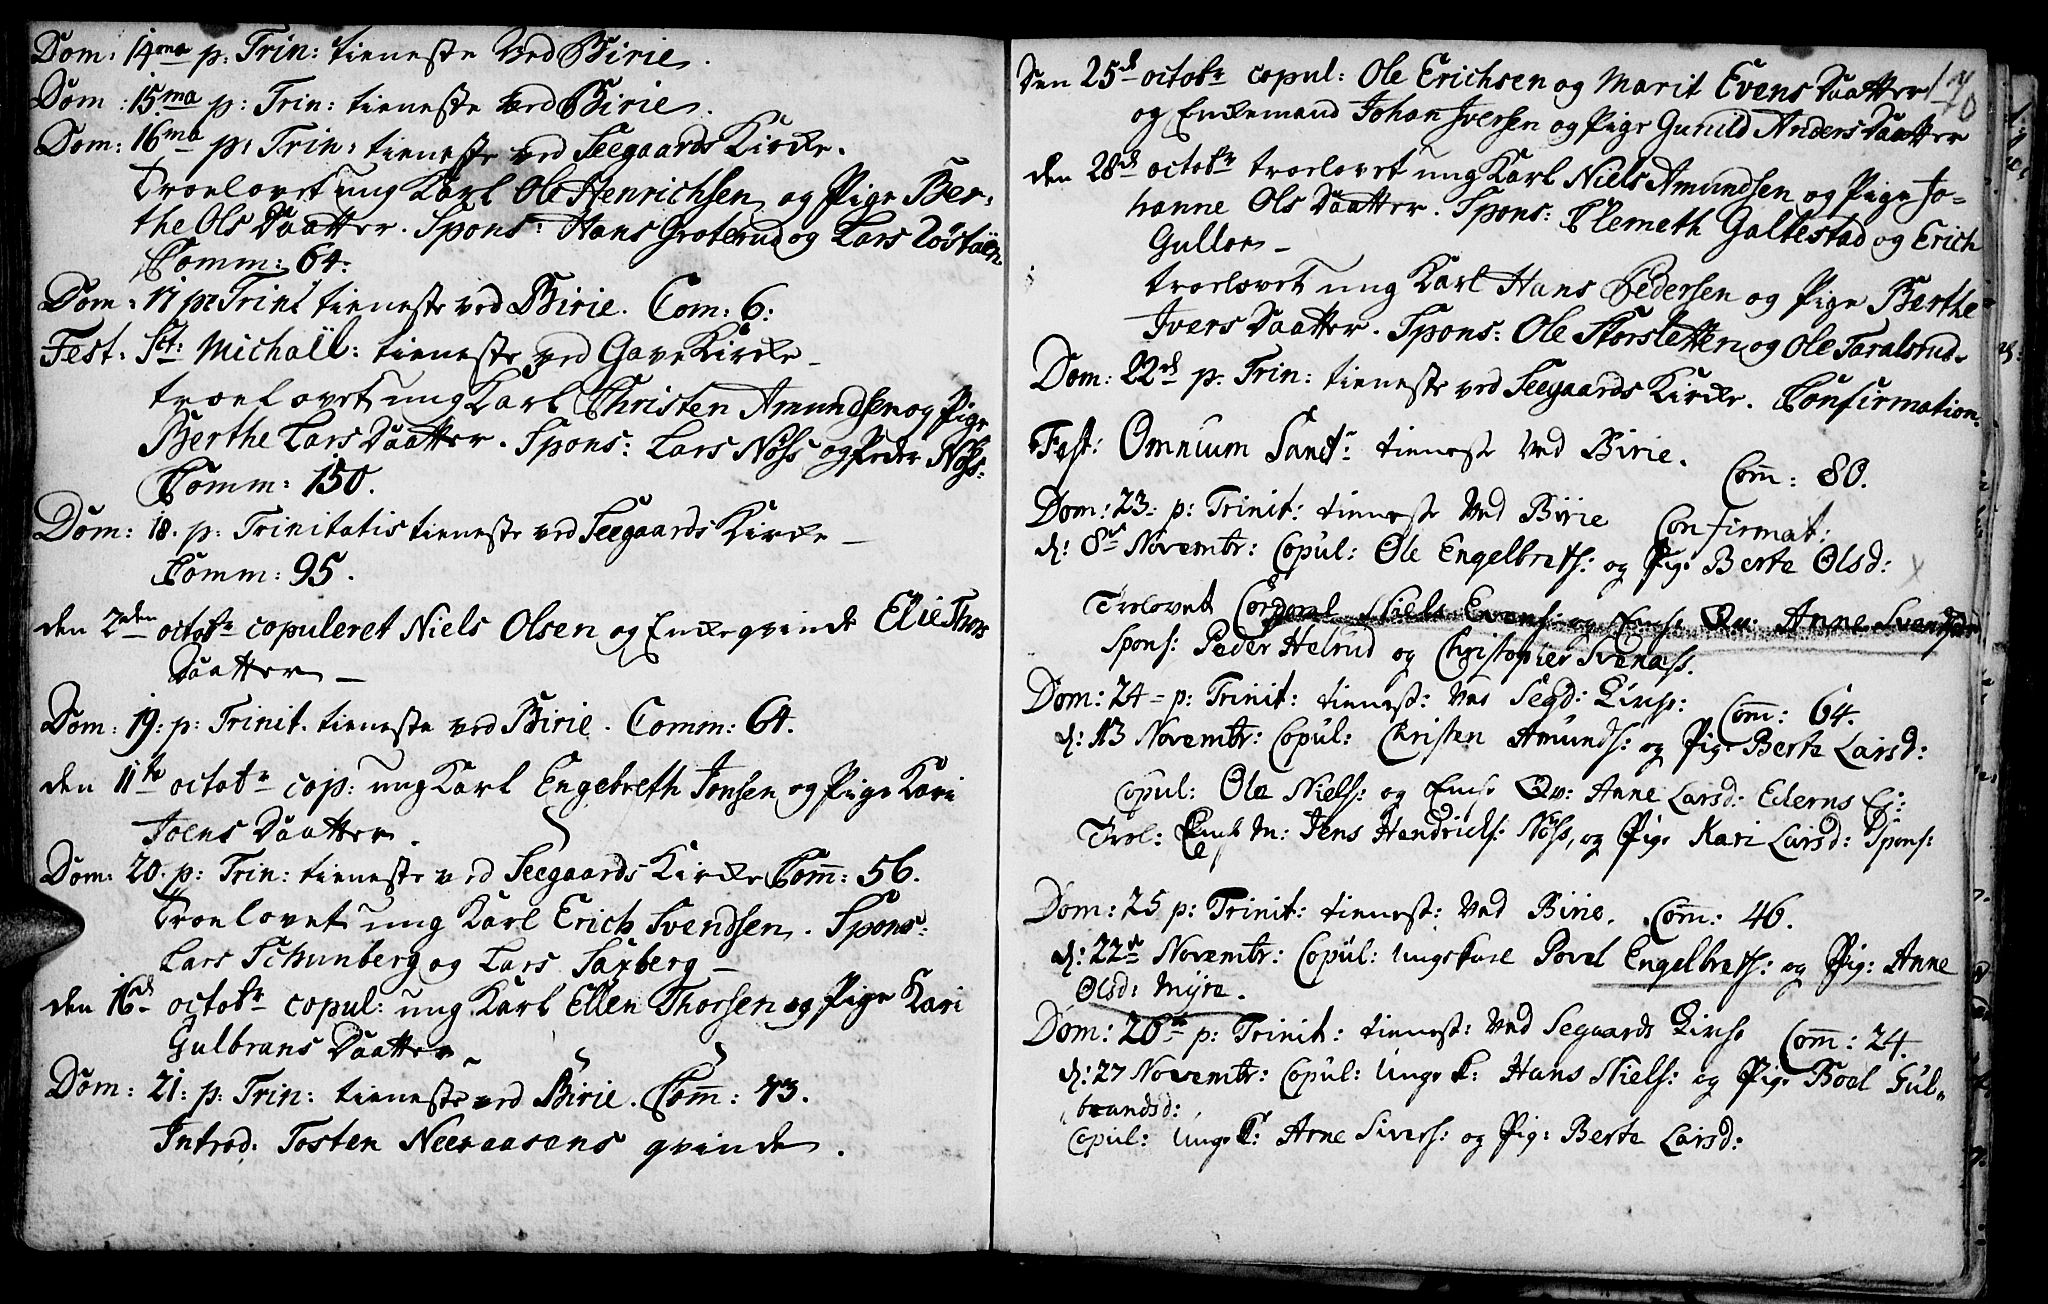 Dom: 14ma p: Trin: tieneste ved Birie.
Dom: 15ma p: Trin: tieneste ved Birie.
Dom: 16ma p: Trin: tieneste ved Seegaards Kircke.
troelovet ung Karl Ole Henrichsen og Pige Ber-
the Ols Daatter. Spons: Hans Groterud og Lars
Comm: 64:
Dom: 17 p: Trin: tieneste ved Birie. Com: 6:
Fest: Sct: Michaïl: tieneste ved Gave Kircke
troelovet ung Karl Christen Amundsen og Pige
Berthe Lars Daatter. Spons: Lars Nøss og Peder Nøss:
Comm: 150.
Dom: 18. p: Trinitatis tieneste ved Seegaards Kircke
Comm: 95.
den 2den octobr copuleret Niels Olsen og Enkeqvinde Elie Thors
Daatter
Dom: 19: p: Trinit. tieneste ved Birie. Comm: 64.
den 11te octobr cop: ung Karl Engebreth Jonsen og Pige Kari
Joens Daatter.
Dom: 20. p: Trin: tieneste ved Seegaards Kircke Com̄: 56.
Troelovet ung Karl Erich Svendsen. Spons:
Lars Schunberg og Lars Saxberg
den 16d octobr copul: ung Karl Ellen Thorsen og Pige Kari
Gulbrans Daatter
Dom: 21: p: Trin: tieneste ved Birie. Com̄: 43.
Introd: Tosten Neeraasens qvinde.
Den 25d octobr copul: Ole Erichsen og Marit Evens Daatter
og Enckemand Johan Iversen og Pige Gunild Anders Daatter
den 28d octobr troelovet ung Karl Niels Amundsen og Pige Jo-
hanne Ols Daatter. Spons: Clemeth Galtestad og Erich
Gullor
troelovet ung Karl Hans Pedersen og Pige Berthe
Ivers Daatter. Spons: Ole Storsletten og Ole Taralsrud
Dom: 22d p. Trin: tieneste ved Seegaards Kircke. Confirmation.
Fest: Omnium Sanct: tieneste ved Birie. Com̄: 80.
Dom: 23: p: Trinit: tieneste ved Birie Confirmat:
d: 8de Novembr: Copul: Ole Engelbreths: og Pig: Berte Olsd:
Trolovet Corporal Niels Evens: og Qv: Anne Svendsd:
Spons: Peder Helrud og Christopher Svenæss.
Dom: 24 p: Trinit: tienest: ved Segd: Kirche: Com̄: 64.
d: 13 Novembr: Copul: Christen Amunds: og Pig: Berte Larsd:
Copul: Ole Niels: og Enche Qv: Anne Larsd:
Trol: Enche M: Jens Hendrichs: Nøss, og Pig: Kari Larsd: Spons:
Dom: 25 p: Trinit: tienest: ved Birie. Com̄: 46.
d: 22de Novembr: Copul: Ungekarl Povel Engelbreths: og Pig: Anne
Olsd: Myre.
Dom: 26de p: Trinit: tienest: ved Segaards Kirche Com̄: 24.
d: 27 Novembr: Copul: Unge K: Hans Niels: og Pig: Boel Gul-
brandsd:
Copul: Unge K: Arne Sivers: og Pig: Berte Larsd: